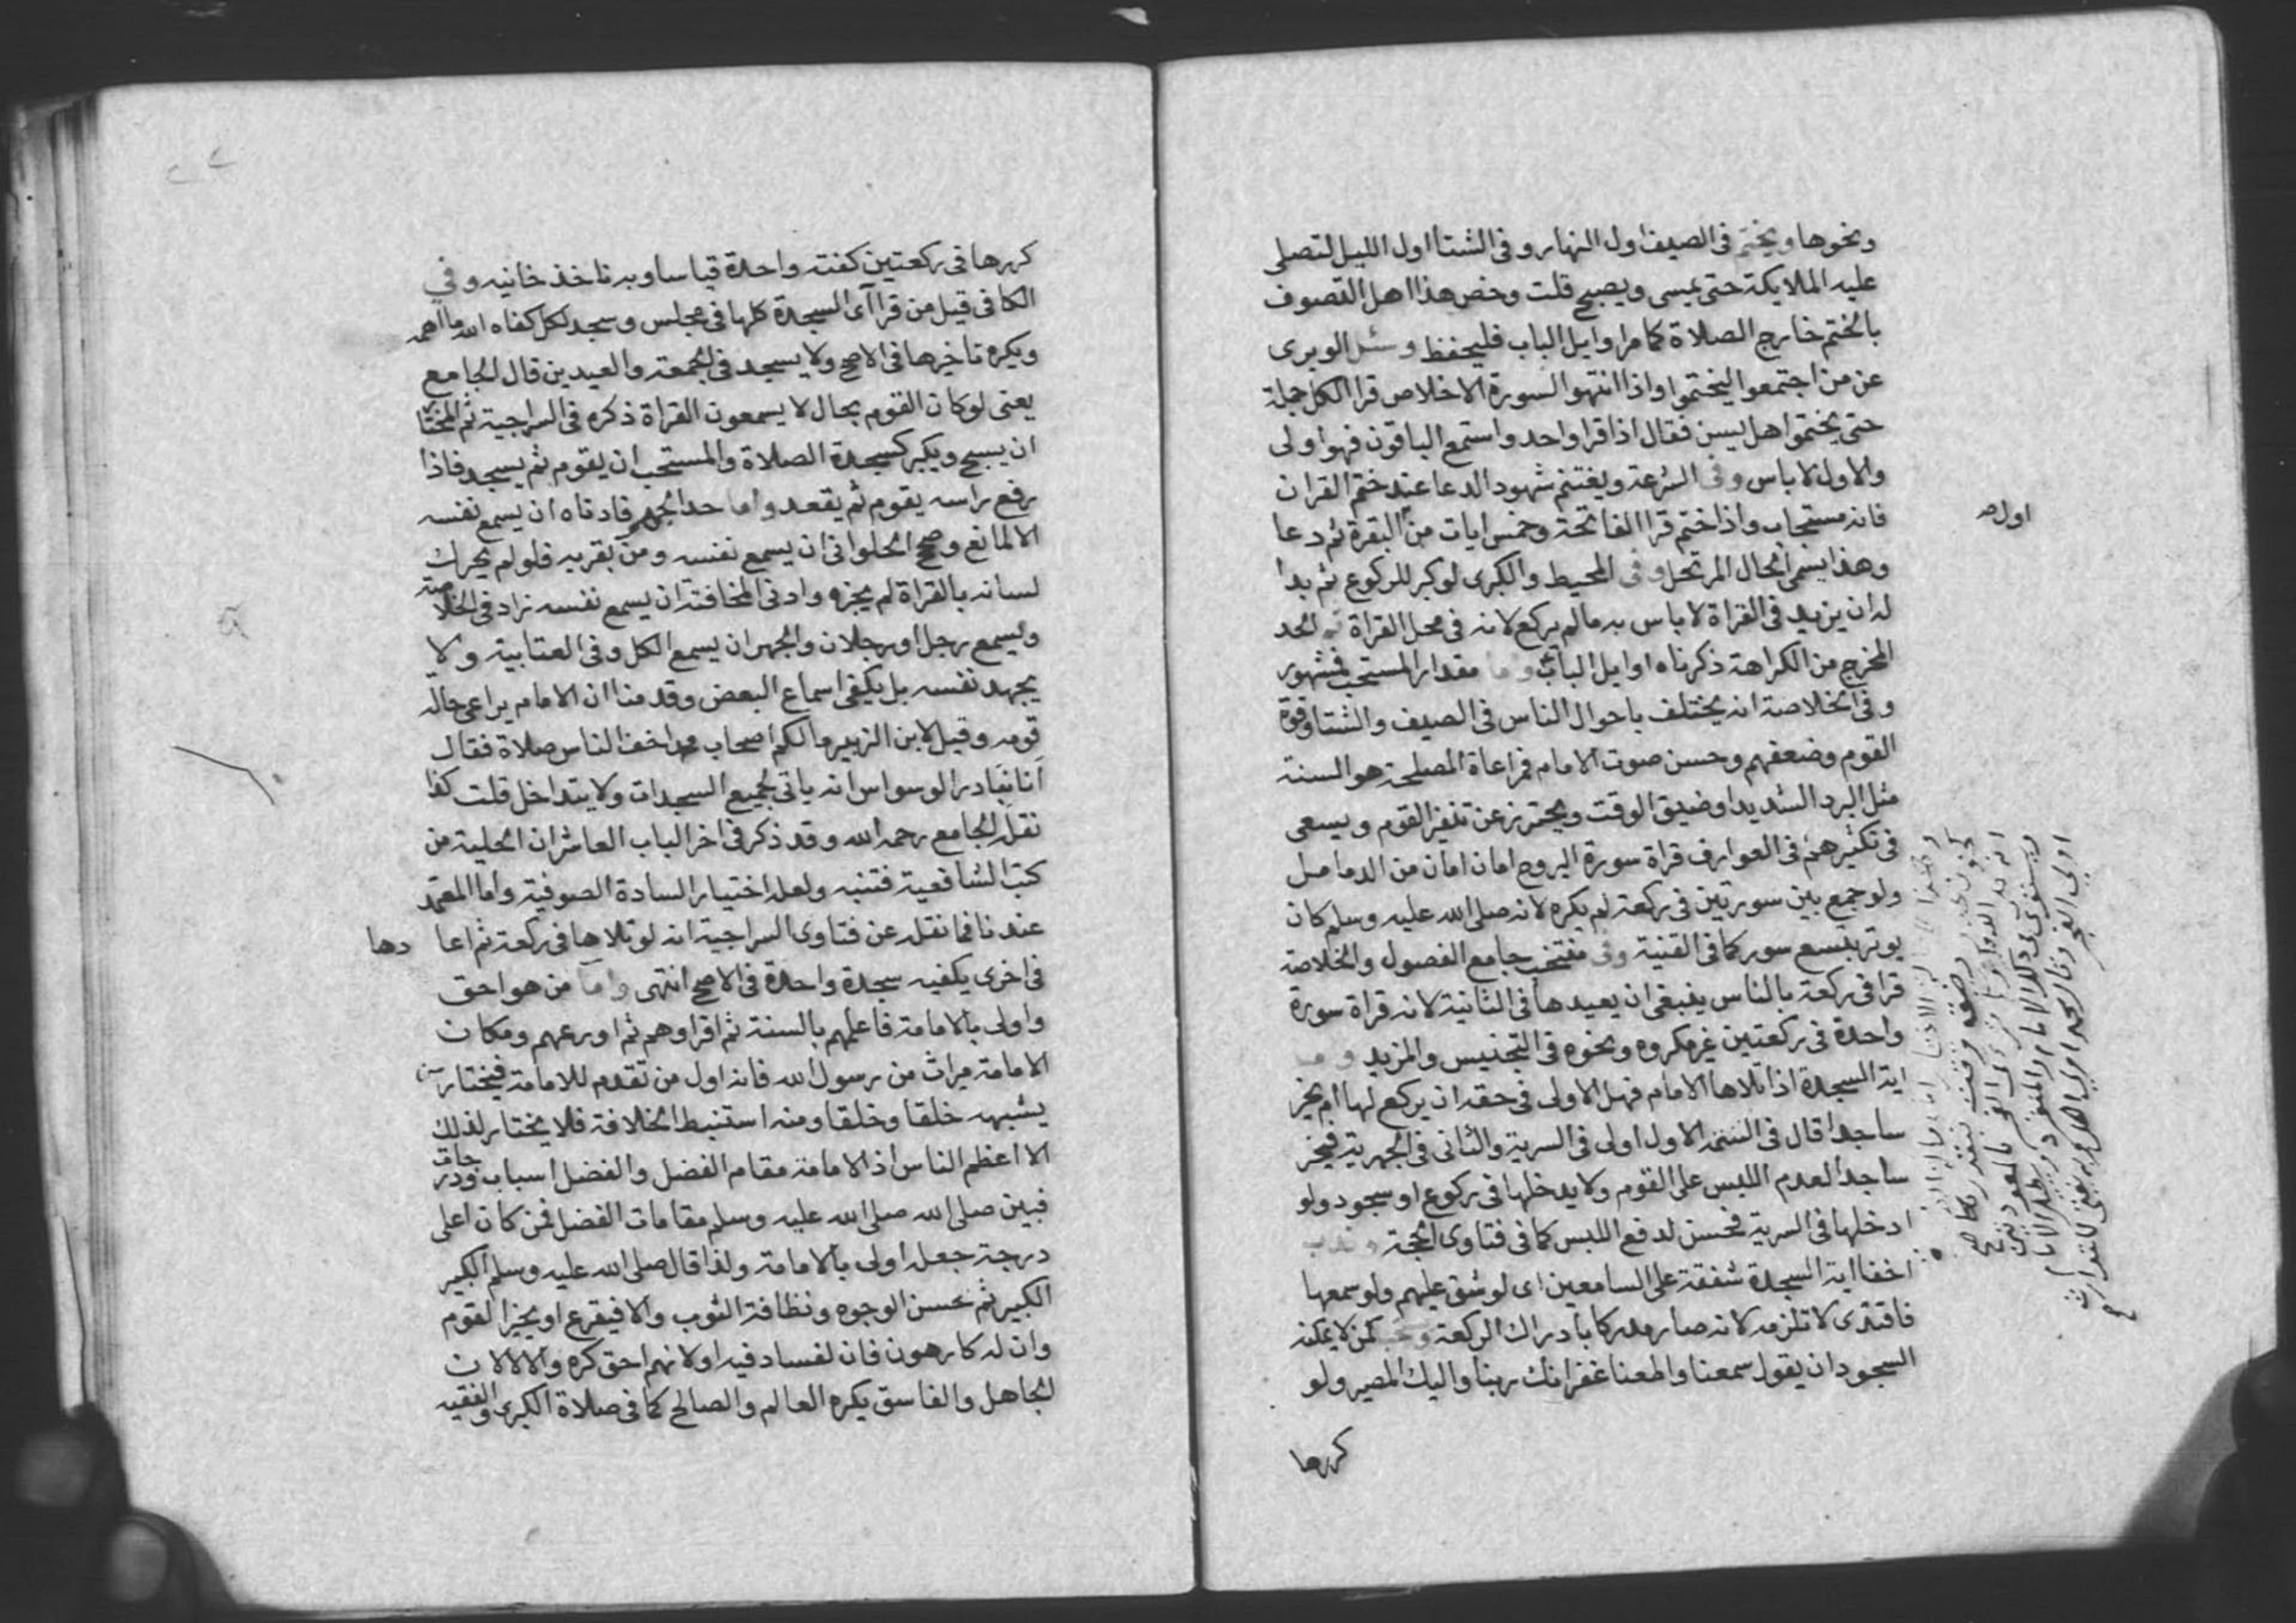 ونحوها ويختم فى الصيف اول النهار وفى الشتا اول الليل لتصلى
عليه الملايكة حتى يمسى ويصبح قلت وخص هذا اهل التصوف
بالختم خارج الصلاة كما مر اوايل الباب فليحفظ وسئل الوبرى
عن من اجتمعوا ليختموا واذا انتهوا لسورة الاخلاص قرا الكل جملة
حتى يختموا هل يسن فقال اذا قرا واحد واستمع الباقون فهو اولى
والاول لا باس وفى الشرعة ويغتنم شهود الدعا عند ختم القران
فانه مستجاب واذا ختم قرا الفاتحة وخمس ايات من البقرة ثم دعا
اول
وهذا يسمى الحال المرتحل وفى المحيط والكبرى لو كبر للركوع ثم بدا
له ان يزيد فى القراة لا باس به ما لم يركع لانه فى محل القراة ثم الحد
المخرج من الكراهة ذكرناه اوايل الباب واما مقدار المستحب فمشهور
وفى الخلاصة انه يختلف باحوال الناس فى الصيف والشتا وقوة
القوم وضعفهم وحسن صوت الامام فمراعاة المصلحة هو السنة
مثل البرد الشديد او ضيق الوقت ويحترز عن تنفير القوم ويسعى
فى تكثيرهم فى العوارف قراة سورة البروج امان امان من الدماميل
ولو جمع بين سورتين فى ركعة لم يكره لانه صلى الله عليه وسلم كان
يوتر بتسع سور كما فى القنية وفى منتخب جامع الفصول والخلاصة
قرا فى ركعة بالناس ينبغى ان يعيدها فى الثانية لانه قراة سورة
واحدة فى ركعتين غير مكروه ونحوه فى التجنيس والمزيد
اية السجدة اذا تلاها الامام فهل الاولى فى حقه ان يركع لها ام يخر
ساجدا قال فى التتمة الاول اولى فى السرية والثانى فى الجهرية فيخر
ساجدا لعدم اللبس على القوم ولا يدخلها فى ركوع او سجود ولو
ادخلها فى السرية فحسن لدفع اللبس كما فى فتاوى الحجة وندب
اخفا اية السجدة شفقة على السامعين اى لو شق عليهم ولو سمعها
فاقتدى لا تلزمه لانه صار مدركا بادراك الركعة لمن لا يمكنه
السجود ان يقول سمعنا واطعنا غفرانك ربنا واليك المصير ولو
كررها
كررها فى ركعتين كفته واحدة قياسا وبه ناخذ خانيه وفي
الكافى قيل من قرا آى السجدة كلها فى مجلس وسجد لكل كفاه الله ما اهمه
ويكره تاخيرها فى الاصح ولا يسجد فى الجمعة والعيدين قال الجامع
يعنى لو كان القوم بحال لا يسمعون القراة ذكره فى السراجية ثم المختار
ان يسبح ويكبر كسجدة الصلاة والمستحب ان يقوم ثم يسجد فاذا
رفع راسه يقوم ثم يقعد واما حد الجهر فادناه ان يسمع نفسه
الا لمانع وصحح الحلوانى ان يسمع نفسه ومن بقربه فلو لم يحرك
لسانه بالقراة لم يجزه وادنى المخافتة ان يسمع نفسه زاد فى الخلاصة
ويسمع رجل او رجلان والجهر ان يسمع الكل وفى العتابية ولا
يجهد نفسه بل يكفى اسماع البعض وقدمنا ان الامام يراعى حاله
قومه وقيل لابن الزبير ما لكم اصحاب محمد اخف الناس صلاة فقال
انا نبادر الوسواس انه ياتى لجميع السجدات ولا يتداخل قلت كذا
نقله الجامع رحمه الله وقد ذكر فى اخر الباب العاشر ان الحلية من
كتب الشافعية فتنبه ولعله اختيار السادة الصوفية واما المعتمد
عندنا فما نقله عن فتاوى السراجية انه لو تلاها فى ركعة ثم اعادها
فى اخرى يكفيه سجدة واحدة فى الاصح انتهى واما من هو احق
واولى بالامامة فاعلمهم بالسنة ثم اقراوهم ثم اورعهم ومكان
الامامة ميراث من رسول الله فانه اول من تقدم للامامة فيختار من
يشبهه خلقا وخلقا ومنه استنبط الخلافة فلا يختار لذلك
الا اعظم الناس اذ الامامة مقام الفضل والفضل اسباب ودرجات
فبين صلى الله صلى الله عليه وسلم مقامات الفضل فمن كان اعلى
درجة جعله اولى بالامامة ولذا قال صلى الله عليه وسلم الكبير
الكبير ثم بحسن الوجوه ونظافة الثوب والا فيقرع او يخير القوم
وان له كارهون فان لفساد فيه او لانهم احق كره والا لا لان
الجاهل والفاسق يكره العالم والصالح كما فى صلاة الكبرى والفقيه